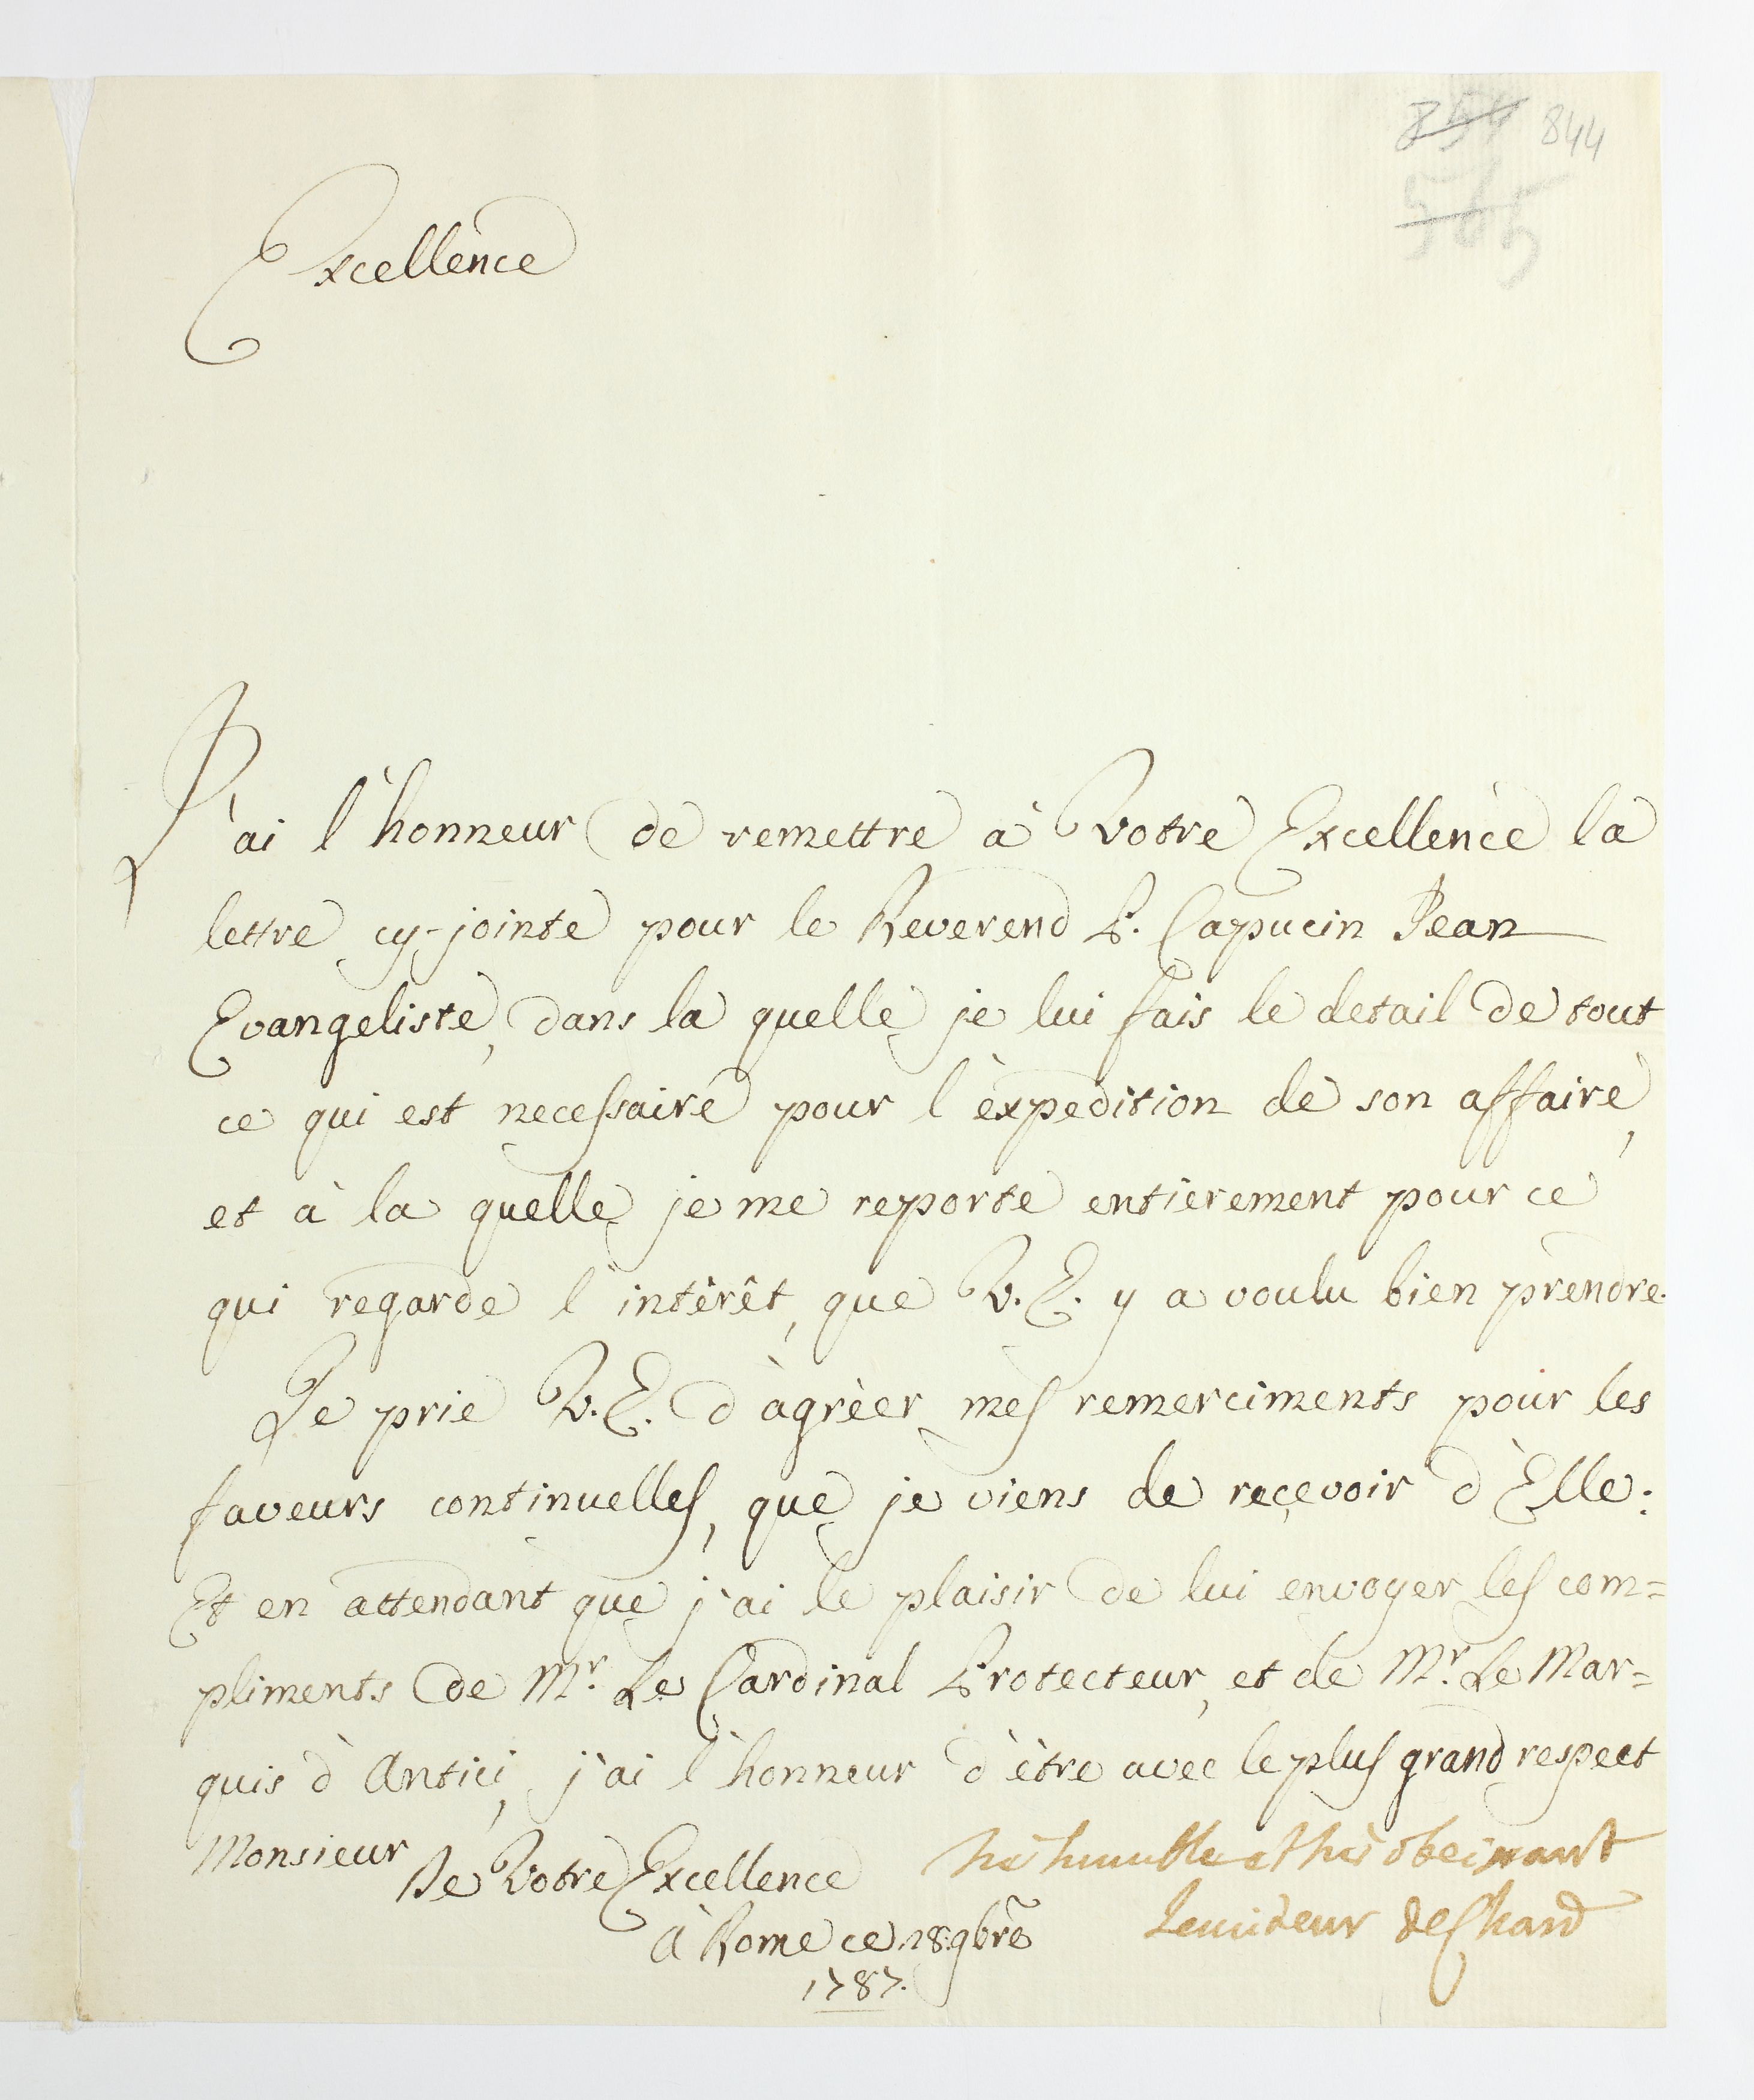 844
Excellence
J'ai l'honneur de remettre à Votre Excellence la
lettre cy-jointe pour le Reverend P. Capucin Jean
Evangeliste, dans la quelle je lui fais le detail de tout
ce qui est necessaire pour l'expedition de son affaire,
et à la quelle je me reporte entièrement pour ce
qui regarde l'intérêt, que V.E. y a voulu bien prendre.
Je prie V.E. d'agrèer mes remerciments pour les
faveurs continuelles, que je viens de reçevoir d'Elle:
Et en attendant que j'ai le plaisir de lui envoyer les com=
pliments de Mr. Le Cardinal Protecteur, et de Mr. Le Mar=
quis d'Antici, j'ai l'honneur d'être avec le plus grand respect
Monsieur De Votre Excellence
très humble et très obeissant
serviteur
à Rome ce 28 9bre
1787.